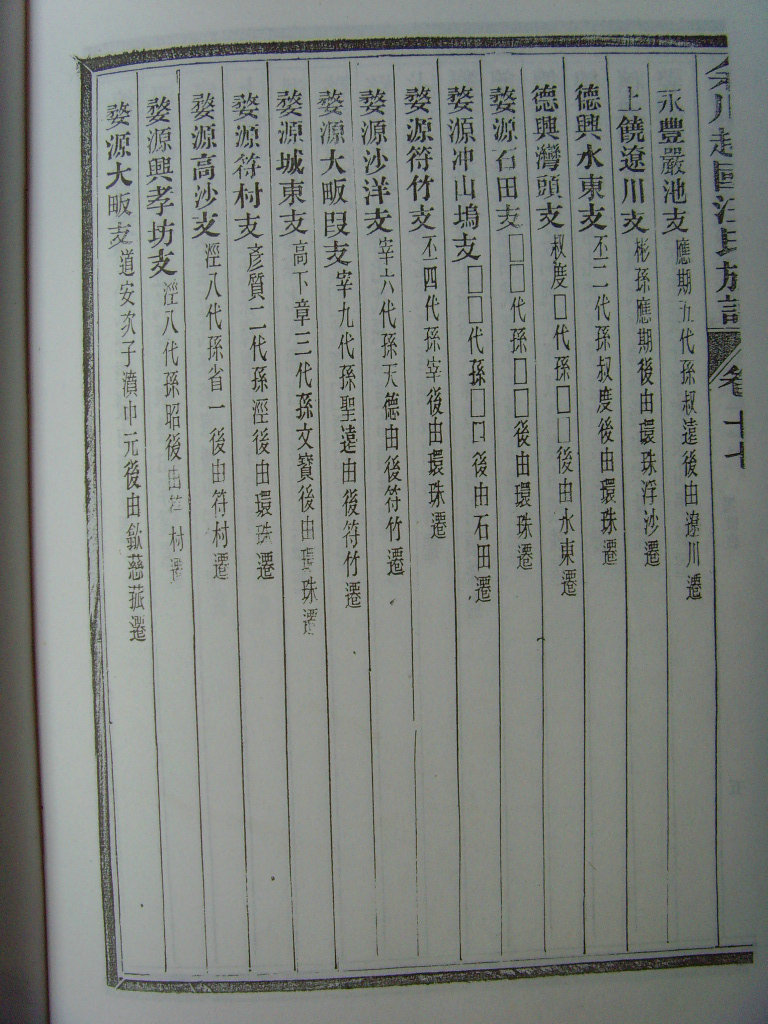 川越國汪氏族譜 卷十七
永豐嚴池支 應期五代孫叔遠後由遼川遷
上饒遼川支 彬孫應期後由環珠浮沙遷
德興水東支 丕二代孫叔度後由環珠遷
德興灣頭支 叔度□代孫□□後由水東遷
婺源石田支 □□代孫□□後由環珠遷
婺源冲山塢支 □□代孫□□後由石田遷
婺源符竹支 丕四代孫宰後由環珠遷
婺源沙洋支 宰六代孫天德由後符竹遷
婺源大畈段支 宰九代孫聖遠由後符竹遷
婺源城東支 高下章三代孫文寶後由環珠遷
婺源符村支 彥質二代孫涇後由環珠遷
婺源高沙支 涇八代孫省一後由符村遷
婺源興孝坊支 涇八代孫昭後由符村遷
婺源大畈支 道安次子濆中元後由歙慈菰遷